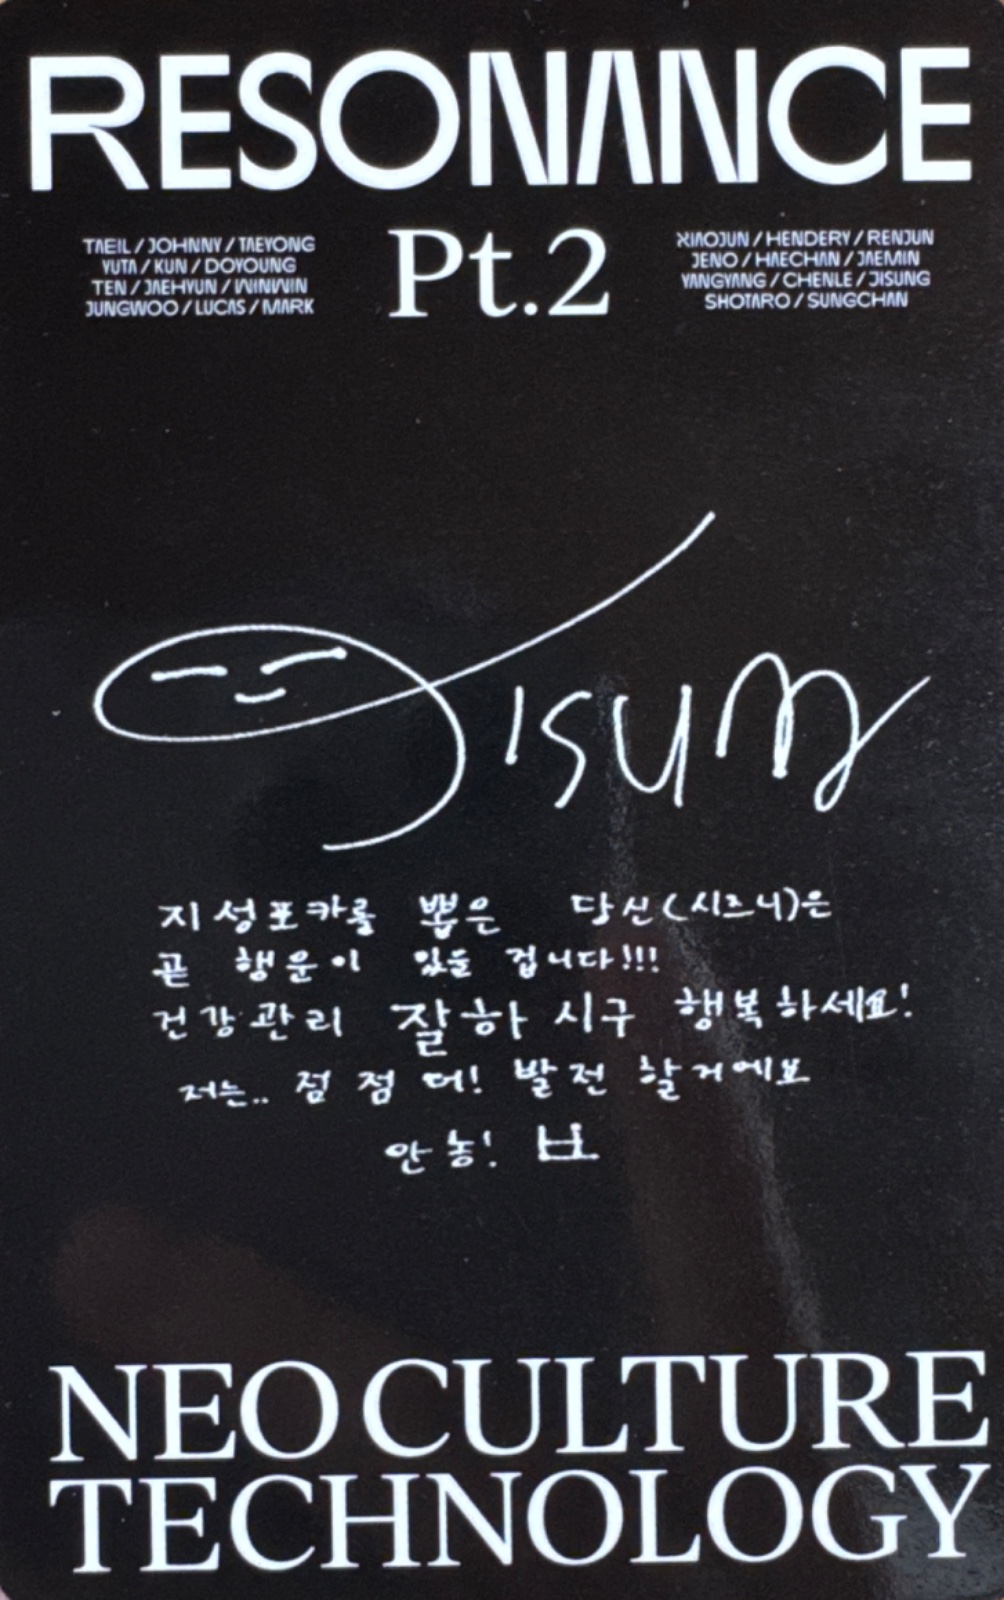 RESONANCE
Pt.2
TAEIL / JOHNNY / TAEYONG
YUTA / KUN / DOYOUNG
TEN / JAEHYUN / WINWIN
JUNGWOO / LUCAS / MARK
XIAOJUN / HENDERY / RENJUN
JENO / HAECHAN / JAEMIN
YANGYANG / CHENLE / JISUNG
SHOTARO / SUNGCHAN
Jisung
지성포카를 뽑은 당신(시즈니)은
곧 행운이 있을 겁니다!!!
건강관리 잘하시구 행복하세요!
저는.. 점점 더! 발전 할거에요
안농! 보
NEO CULTURE
TECHNOLOGY